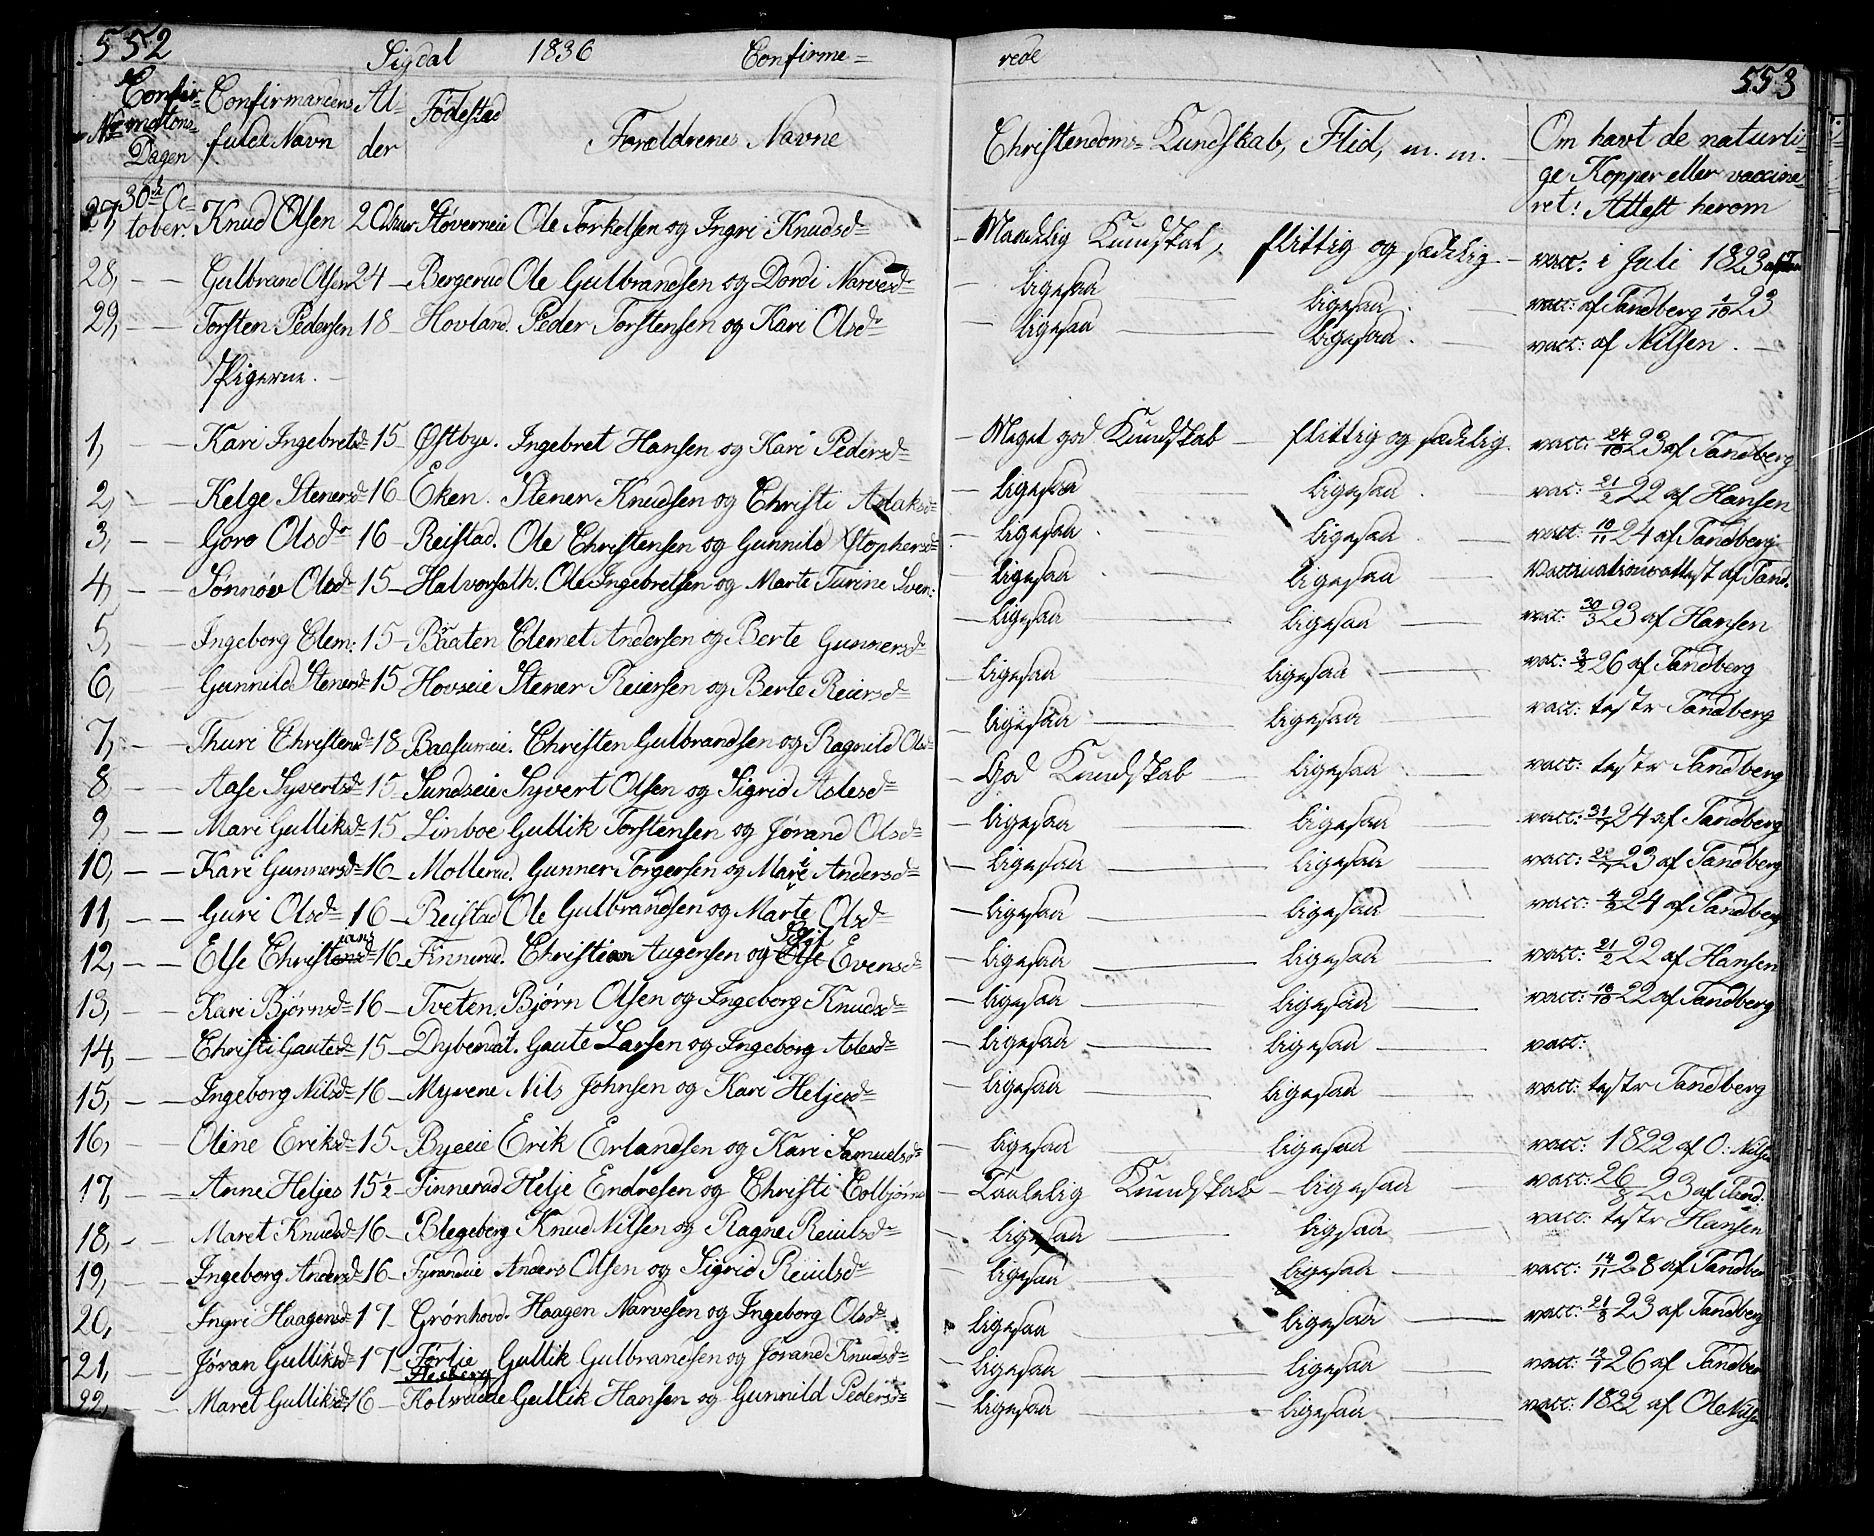 552
Sigdal 1836 Confirme=
rede
553
No Confirmations Dagen | Confirmandens fulde Navn | Alder | Fødestad | Forældrenes Navne | Christendoms Kundskab, Flid, m. m. | Om havt de naturlige Kopper eller vaccineret! Attest herom
27, 30te October. Knud Olsen 20 Støverneie Ole Torkelsen og Ingri Knudsdr – Maadelig Kundskab, flittig og sædelig – vacc: i Juli 1823
28, – – Gulbrand Olsen 24 – Bergerud Ole Gulbrandsen og Dordi Narvesdr – ligesaa – ligesaa. – vacc: af Tandberg 1/10 23
29, – – Torsten Pedersen 18 – Hovland. Peder Torstensen og Kari Olsdr – ligesaa – ligesaa. – vacc: af Nilsen. –
Pigerne. –
1, – Kari Ingebretsdr 15 Østbye. Ingebret Hansen og Kari Pedersdr – Meget god Kundskab – flittig og sædelig. vacc: 24/10 23 af Tandberg
2, – – Helge Stenersdr 16 – Eken. Stener Knudsen og Christi Aslaksdr – ligesaa – ligesaa. vac: 21/2 22 af Hansen
3, – – Goro Olsdr 16 – Reistad. Ole Christensen og Gunnild Xstophersdr – ligesaa. – ligesaa. – vacc: 10/11 24 af Tandberg
4, – – Sønnøv Olsdr 15 – Halvorseth. Ole Ingebretsen og Marte Turine Sven: – ligesaa. – ligesaa – Vaccinationsattest af Tand.
5, – Ingeborg Clem: 15 – Braaten Clemet Andersen og Berte Gunnersdr – ligesaa – ligesaa – vac: 30/3 23 af Hansen
6, – Gunnild Stenersdr 15 – Hovseie Stener Reiersen og Berte Reiersdr – ligesaa – ligesaa – vac: 3/2 26 af Tandberg
7, – – Thuri Christensdr 18 – Baasumeie. Christen Gulbrandsen og Ragnild Olsdr – ligesaa – ligesaa – vacc: testr Tandberg
8, – – Aase Syvertsdr 15 – Sundseie Syvert Olsen og Sigrid Aslesdr – God Kundskab – ligesaa – vacc: testr Tandberg
9, – – Mari Gulliksdr 15 Linboe Gullik Torstensen og Jørand Olsdr – ligesaa – ligesaa – vacc: 31/7 24 af Tandberg
10, – – Kari Gunnersdr 16 – Mollerud. Gunner Torgersen og Mari Andersdr – ligesaa – ligesaa – vacc: 23 af Tandberg
11, – – Guri Olsdr 16 – Reistad Ole Gulbrandsen og Marte Olsdr – ligesaa – ligesaa – vacc: 24 af Tandberg
12, – – Else Christiansdr 16 – Finnerud. Christian Augensen og Else Evensdr – ligesaa – ligesaa – vacc: 21/2 22 af Hansen
13, – Kari Bjørnsdr 16 – Tveten. Bjørn Olsen og Ingeborg Knudsdr – ligesaa – ligesaa – vacc: 22 af Tandberg
14, – Christi Gautesdr 15 – Dybendal. Gaute Larsen og Ingeborg Aslesdr – ligesaa – ligesaa – vacc:
15, – – Ingeborg Nilsdr 16 – Myrene Nils Johnsen og Kari Heljesdr – ligesaa – ligesaa – vacc: testr Tandberg
16, – – Oline Eriksdr 15 – Byeeie Erik Erlandsen og Kari Samuelsdr – ligesaa – ligesaa – vacc: 1822 af O. Nilsen
17, – Anne Heljes 15 1/2 – Finnerud Helje Endresen og Christi Colbjørns – Taalelig Kundskab – ligesaa – vacc: 26/8 23 af Tand:
18, – Maret Knudsdr 16 – Blegeberg Knud Nilsen og Ragne Reiulsdr – ligesaa – ligesaa – vacc: testr Hansen
19, – Ingeborg Andersdr 16 – Anders Olsen og Sigrid Reiulsdr – ligesaa – ligesaa – vacc: 14/11 28 af Tandber
20, – Ingri Haagensdr 17 – Grønhovd. Haagen Narvesen og Ingeborg Olsdr – ligesaa – ligesaa – vacc: 21/8 23 af Tandberg
21, – Jøran Gulliksdr 17 – Førlie Gullik Gulbrandsen og Jørand Knudsdr – ligesaa – ligesaa – vacc: 26 af Tandber
22, – – Maret Gulliksdr 16 – Gullik Hansen og Gunnild Pedersdr – ligesaa – ligesaa – vacc: 1822 af Ole Nilsen